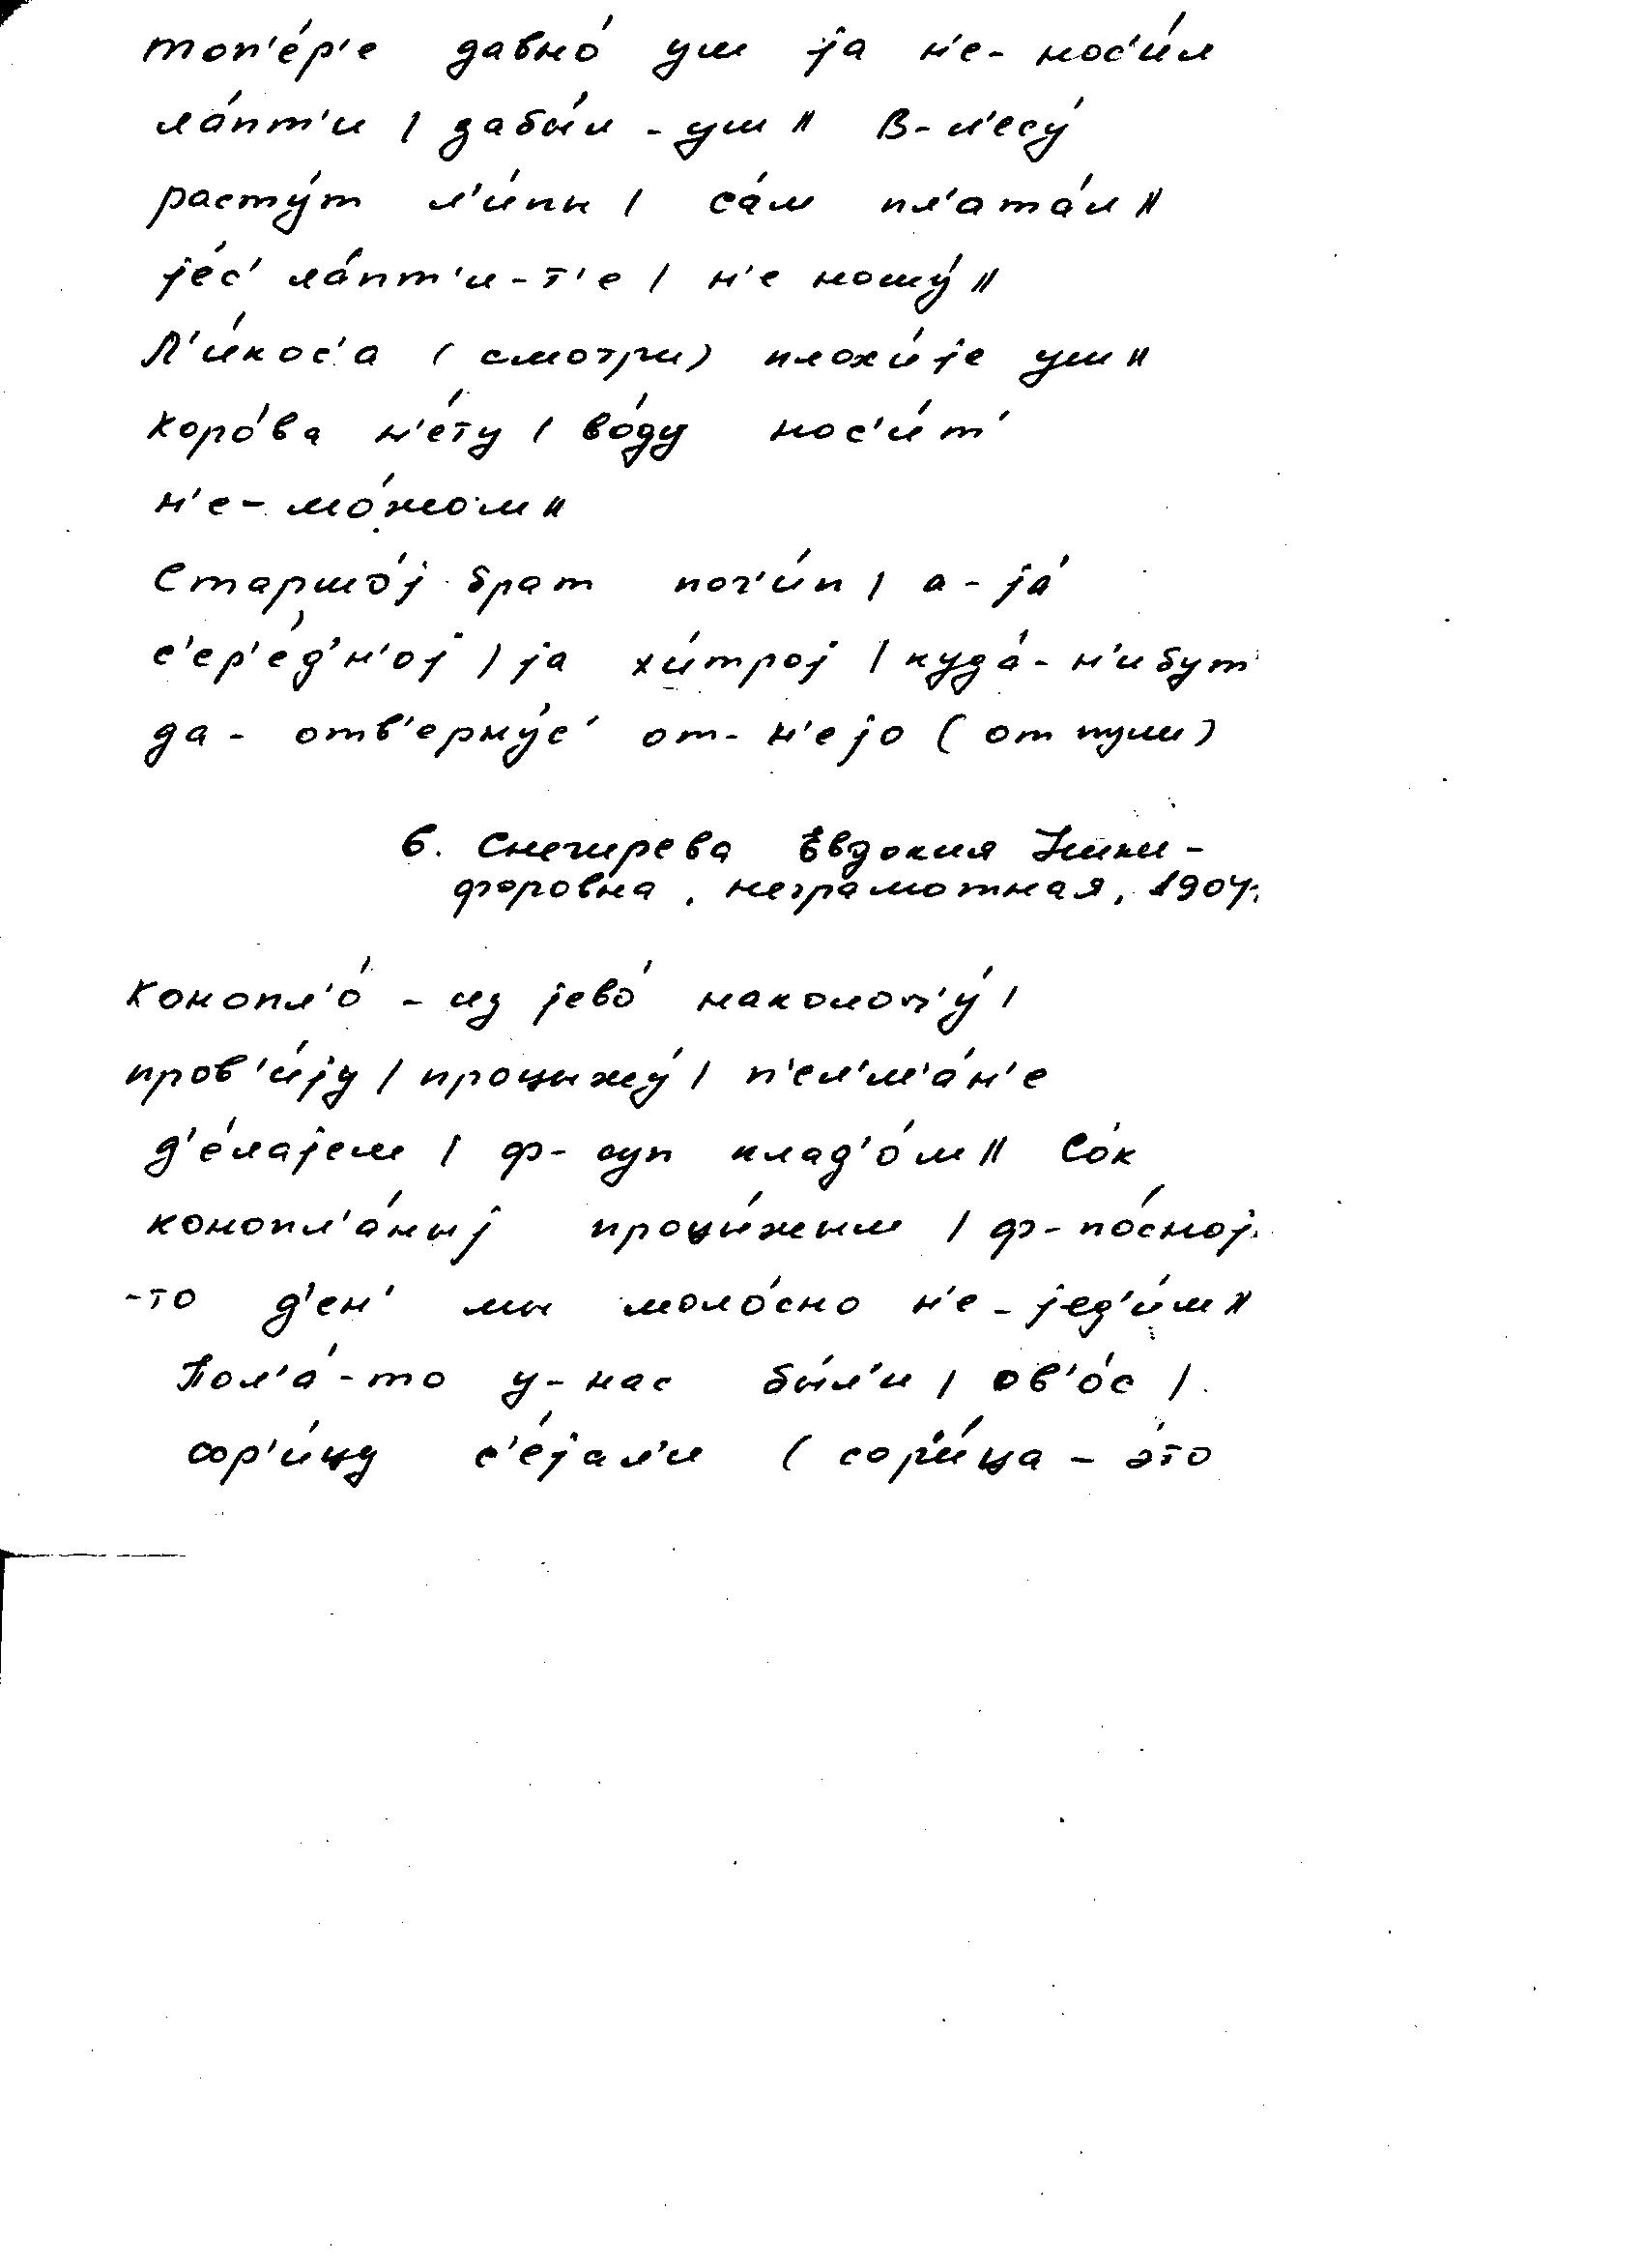 топ'е́р'е давно́ уш jа н'е- нос'и́л
ла́пт'и | забы́л - уш || В- л'есу́
расту́т л'и́пы | са́м пл'ата́л ||
jе́с' ла́пт'и-т'е | н'е ношу́ ||
Л'и́кос'а (смотри) плохи́jе уш ||
Коро́ва н'е́ту | во́ду нос'и́т'
н'е- мо́жом ||
Старшо́j брат пог'и́п | а- jа́
с'ер'е́д'н'оj | jа хи́троj | куда́- н'ибут'
да- отв'ерну́с' от- н'еjо (от пули)
6. Снегирева Евдокия Ники-
форовна, неграмотная, 1904г.
Конопл'о́ - из jево́ наколоч'у́ |
пров'и́jу | процыжу́ | п'ел'м'а́н'е
д'е́лаjем | ф- суп клад'о́м || Со́к
конопл'а́ныj процы́жым | ф- по́сноj-
-то д'ен' мы моло́сно н'е- jед'и́м ||
Пол'а́-то у- нас бы́л'и | ов'о́с |
сор'и́цу с'е́jал'и (сор'и́ца - э́то